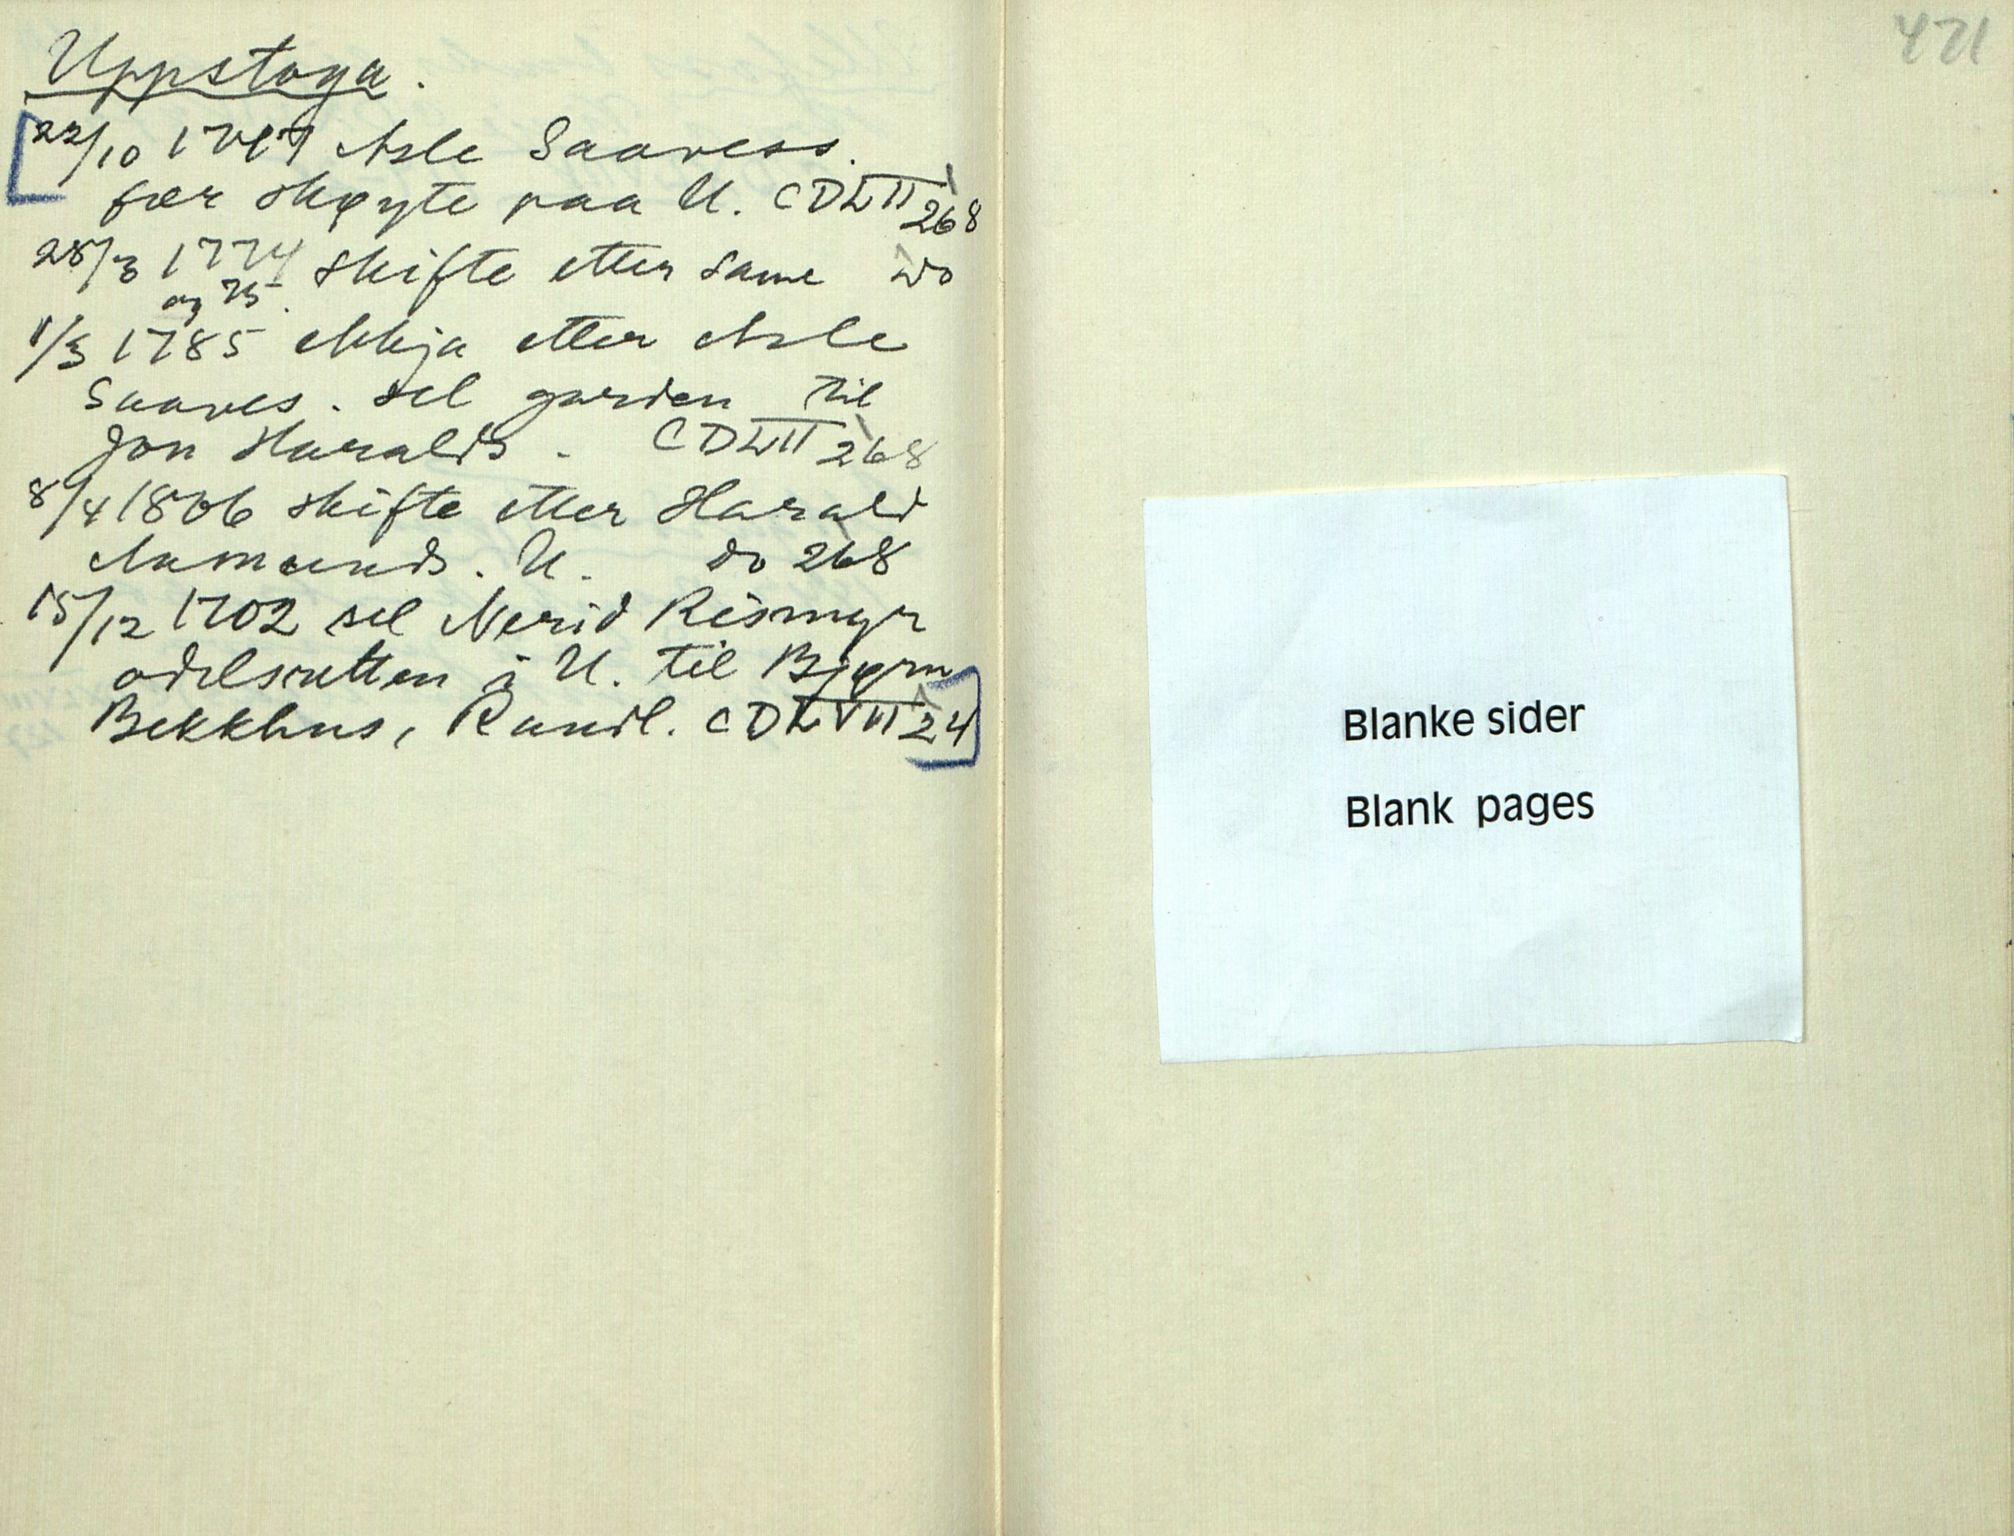 Uppstoga.
22/10 1747 Asle Saavess.
fær skøyte paa U. CDLII 268
28/3 1774 skifte etter same do
og 75.
1/3 1785 ekkja etter Asle
Saaves. sel garden til
Jon Haralds. CDLII 268
8/4 1806 skifte etter Harald
Aamunds. U. do 268
15/12 1702 sel Nerid Rismyr
odelsretten i U. til Bjørn
Bekkhus, Raudl. CDLVII 24
421
Blanke sider
Blank pages